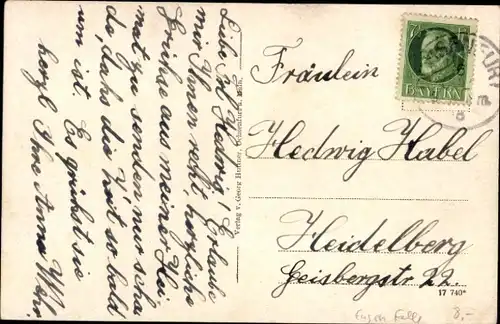 Lieb. Frl. Hedwig! Erlaube
mir Ihnen recht herzliche
Grüße aus meiner Hei-
mat zu senden, nur scha
de, daß die Zeit so bald
um ist. Es grüßt sie
herzl. Ihre Anna
Verlag v. Georg
BAYERN
Fräulein
Hedwig Habel
Heidelberg
Geisbergstr 22.
17 740*
8,-